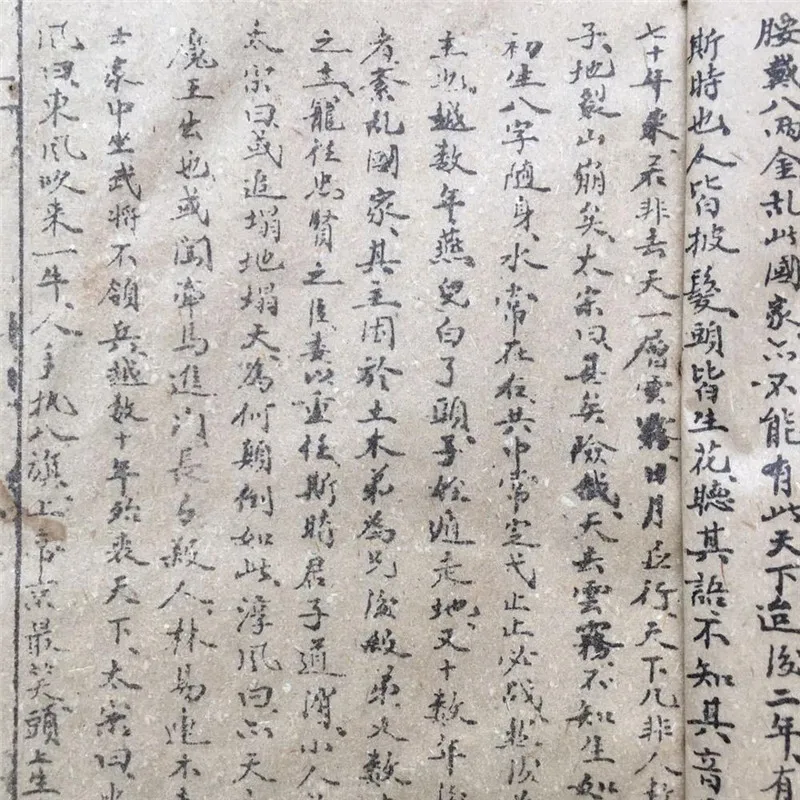 腰戴八両金乱此國家亦不能有此天下迨後二年有
斯時也人皆披髮頭皆生花聽其語不知其音
七十年來若非去天一層雲霧日月並行天下几非人
子地裂山崩矣太宗曰甚矣險哉天去雲霧不知生
初生八字随身水常在右共中常定弋止止必戈然後
主必越数年燕兒白了頭子孫遁走地又十数年後
者紊乱國家其主困於土木弟為兄後殺弟又数
之主寵任忠賢之臣委以重任斯時君子道消小人
太宗曰或追塌地塌天為何顛倒如此淳风曰亦天
魔王出也或闖牽馬進门長弓殺人林易連木
士家中坐武將不領兵越数十年始喪天下太宗曰
风曰東风吹来一牛人手执八旗上言京最笑頭上生